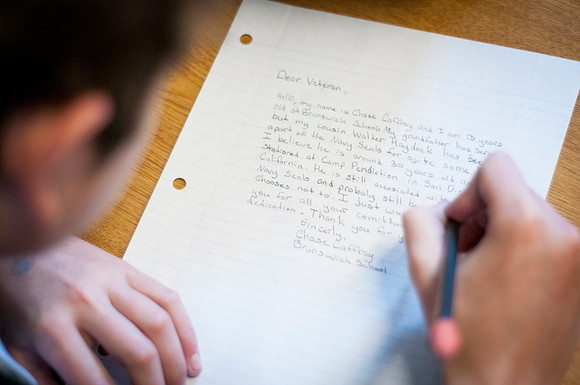 Dear Veteran,
Hello, my name is Chase Caffray and I am 13 years
old at Brunswick School. My grandfather has
but my cousin Walter Haydock has been
apart of the Navy Seals for quite some
I believe he is around 30 years old
stationed at Camp Pendleton in San
California. He is still associated
Navy Seals and probaly still be
chooses not to. I just
you for all your
dedication. Thank you for
Sincirly,
Chase Caffray
Brunswick School